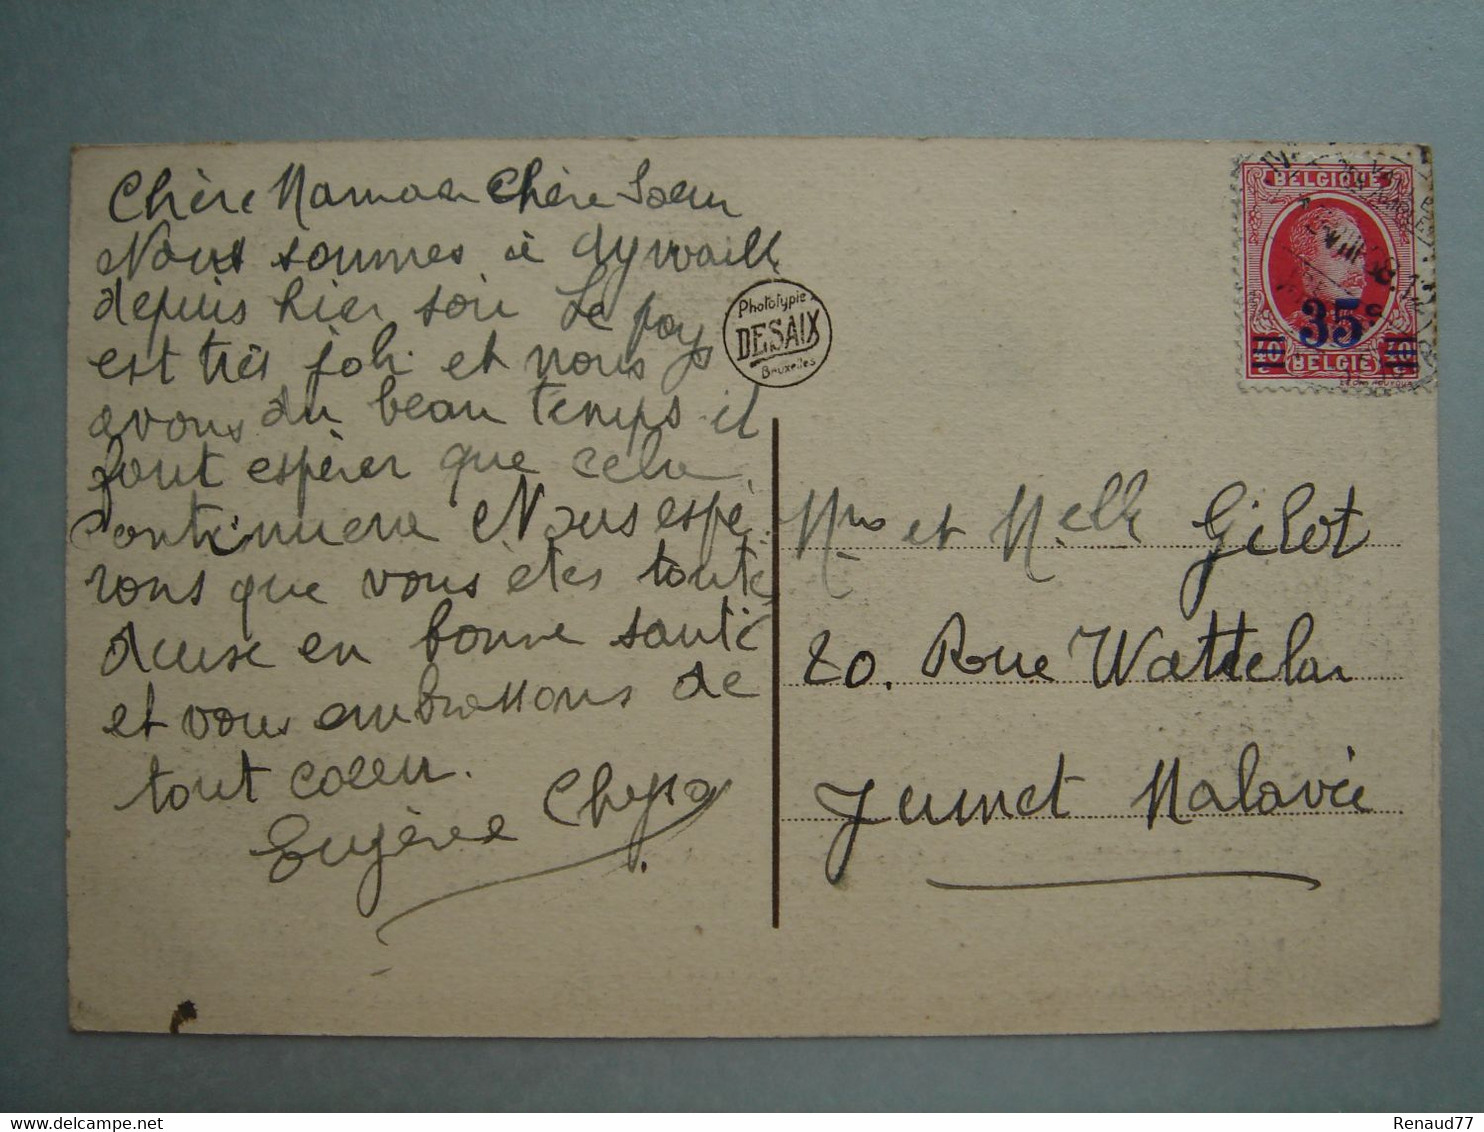 Chère Maman Chère Soeur
Nous sommes à Aywaille
depuis hier soir Le pays
est très joli et nous
avons du beau temps il
faut espérer que cela
continuera Nous espé
rons que vous êtes toute
deuse en bonne santé
et vous embrassons de
tout coeur.
Eugène
Phototypie
DESAIX
Bruxelles
BELGIQUE
35
40 BELGIË 40
Mme et Melle Gilot
20. Rue Wattelar
Jumet Malavée
Renaud77